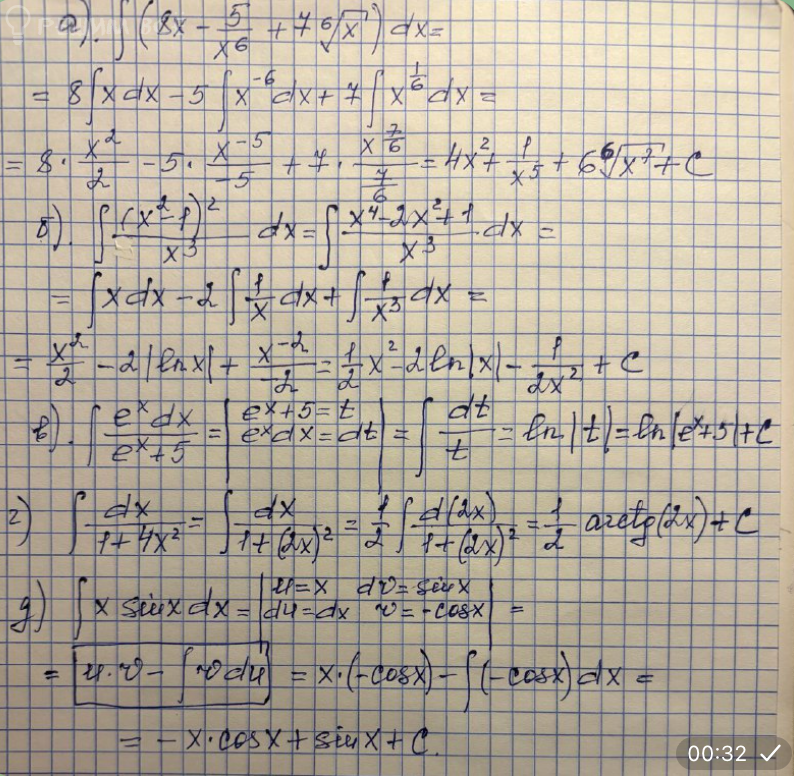 а). ∫ (8x - 5/x^6 + 7 ⁶√x) dx =
= 8∫x dx - 5∫x^{-6} dx + 7∫x^{1/6} dx =
= 8 · x^2/2 - 5 · x^{-5}/-5 + 7 · x^{7/6}/(7/6) = 4x^2 + 1/x^5 + 6 ⁶√x^7 + C
б). ∫ (x^2-1)^2/x^3 dx = ∫ (x^4-2x^2+1)/x^3 dx =
= ∫x dx - 2∫ 1/x dx + ∫ 1/x^3 dx =
= x^2/2 - 2|ln x| + x^{-2}/-2 = 1/2 x^2 - 2 ln|x| - 1/2x^2 + C
в). ∫ e^x dx/(e^x+5) = | e^x+5=t e^x dx=dt | = ∫ dt/t = ln|t| = ln|e^x+5| + C
г) ∫ dx/(1+4x^2) = ∫ dx/(1+(2x)^2) = 1/2 ∫ d(2x)/(1+(2x)^2) = 1/2 arctg(2x) + C
д) ∫ x sinx dx = | u=x dv=sinx du=dx v=-cosx | =
= u·v - ∫v du = x·(-cosx) - ∫(-cosx) dx =
= -x·cosx + sinx + C.
00:32 ✓